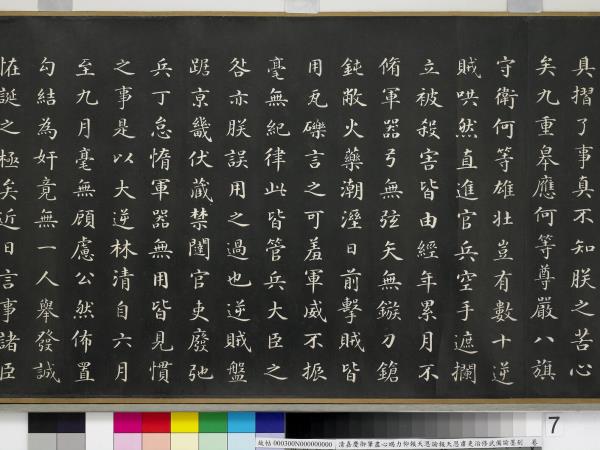 具摺了事真不知朕之苦心
矣九重皋應何等尊嚴八旗
守衛何等雄壯豈有數十逆
賊哄然直進官兵空手遮攔
立被殺害皆由經年累月不
脩軍器弓無弦矢無鏃刀鎗
鈍敝火藥潮溼日前擊賊皆
用瓦礫言之可羞軍威不振
毫無紀律此皆管兵大臣之
咎亦朕誤用之過也逆賊盤
踞京畿伏藏禁闥官吏廢弛
兵丁怠惰軍器無用皆見慣
之事是以大逆林清自六月
至九月毫無顧慮公然佈置
勾結為奸竟無一人舉發誠
怪誕之極矣近日言事諸臣
7
故帖 000300N000000000 清嘉慶御筆盡心竭力仰報天恩諭報天恩肅吏治修武備諭墨刻 卷